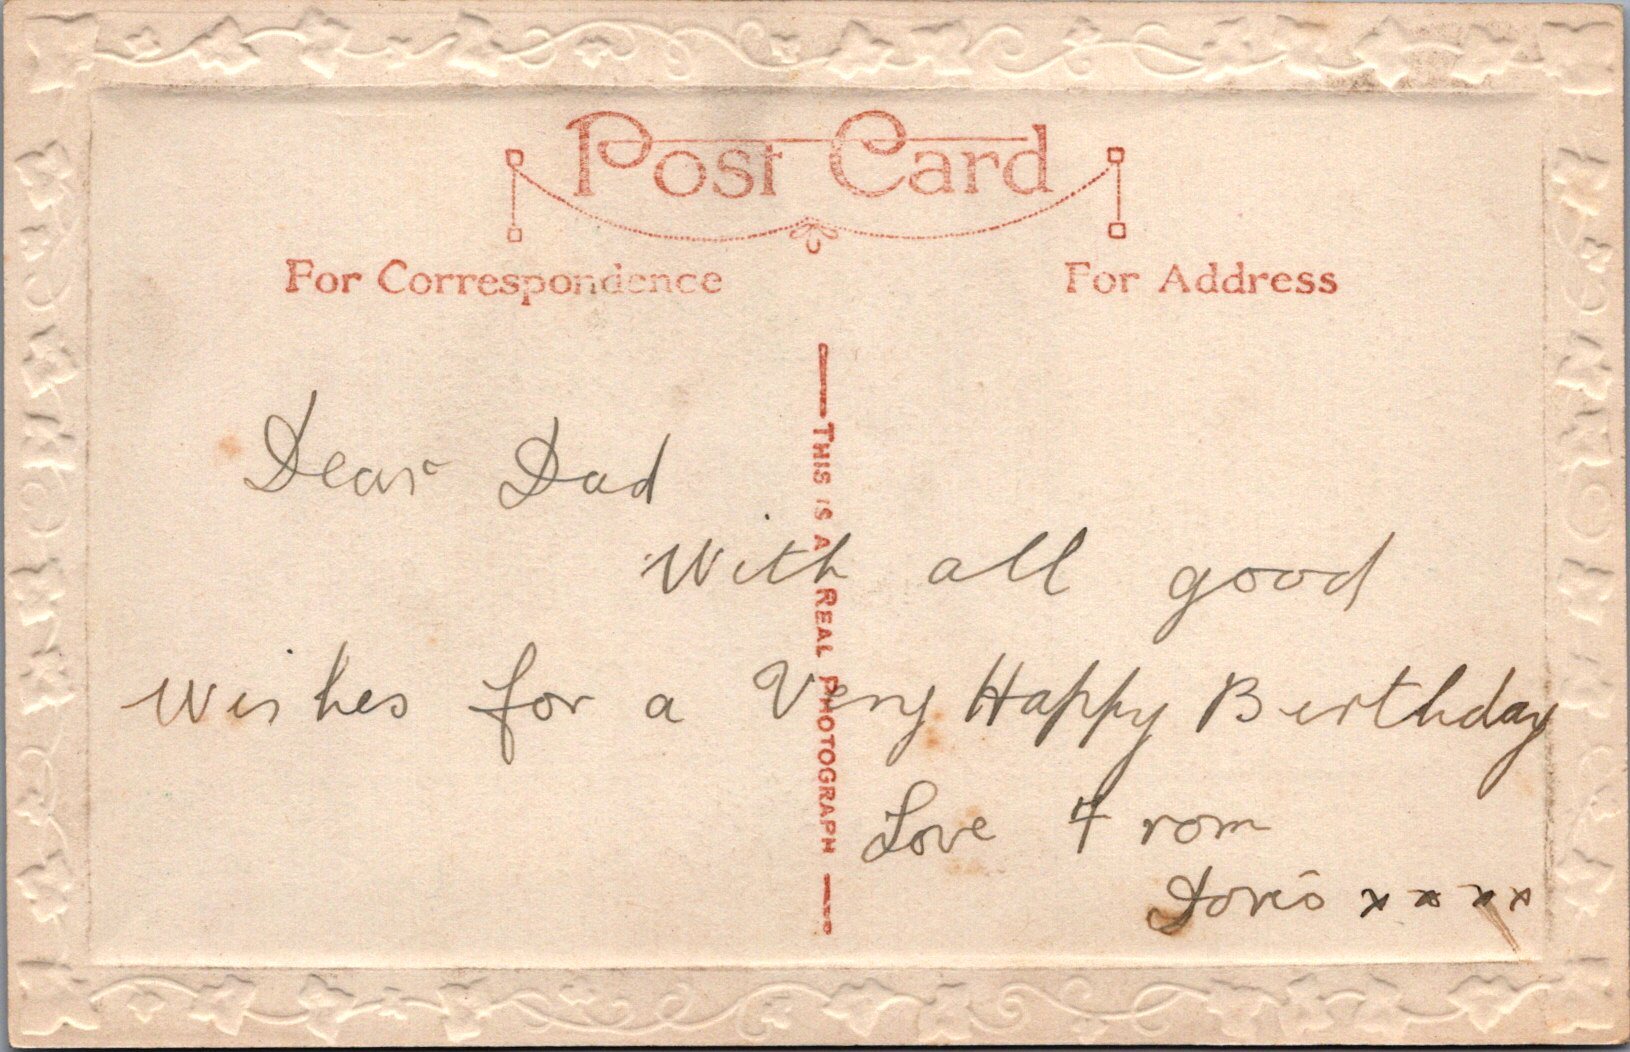 Post Card
For Correspondence
For Address
THIS IS A REAL PHOTOGRAPH
Dear Dad
With all good
wishes for a Very Happy Birthday
Love From
Doris x x x x